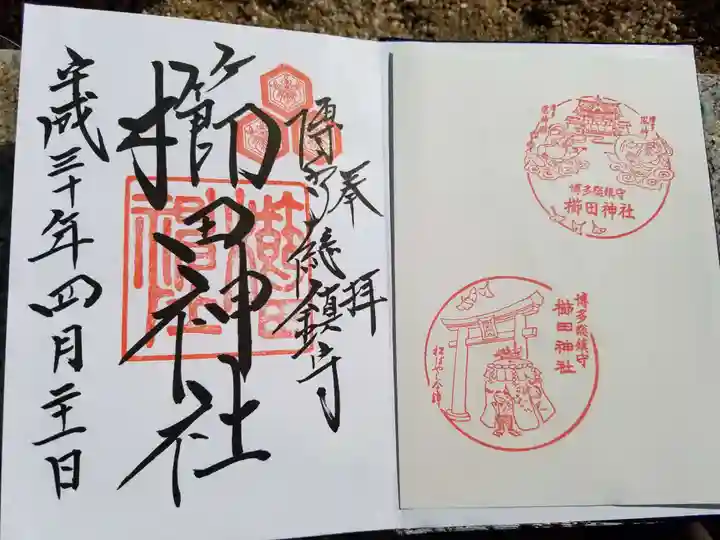 奉拝
博多総鎮守
櫛田神社
平成三十年四月二十一日
博多総鎮守
櫛田神社
博多総鎮守
櫛田神社